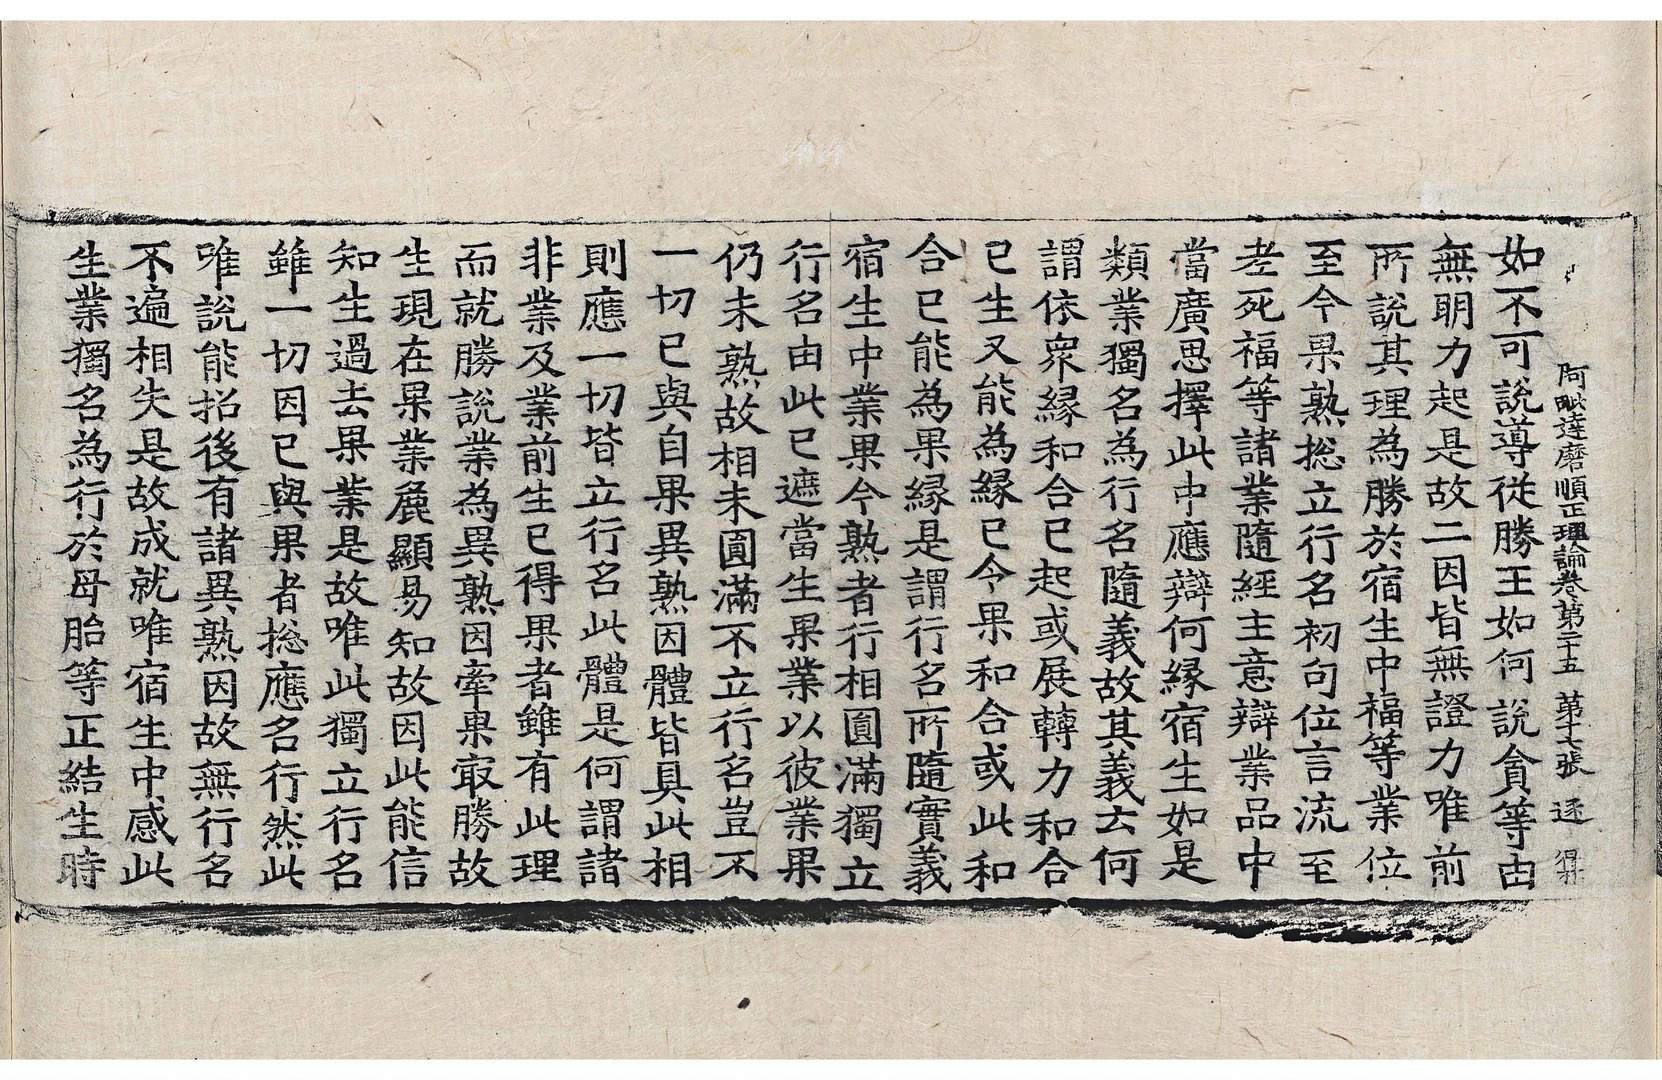 阿毗達磨順正理論卷第二十五 第十七張 逐
如不可說導從勝王如何說貪等由
無明力起是故二因皆無證力唯前
所說其理為勝於宿生中福等業位
至今果熟捴立行名初句位言流至
老死福等諸業隨經主意辯業品中
當廣思擇此中應辯何緣宿生如是
類業獨名為行名隨義故其義云何
謂依衆緣和合已起或展轉力和合
已生又能為緣已令果和合或此和
合已能為果緣是謂行名所隨實義
宿生中業果今熟者行相圓滿獨立
行名由此已遮當生果業以彼業果
仍未熟故相未圓滿不立行名豈不
一切已與自果異熟因體皆具此相
則應一切皆立行名此體是何謂諸
非業及業前生已得果者雖有此理
而就勝說業為異熟因牽果㝡勝故
生現在果業麁顯易知故因此能信
知生過去果業是故唯此獨立行名
雖一切因已與果者捴應名行然此
唯說能招後有諸異熟因故無行名
不遍相失是故成就唯宿生中感此
生業獨名為行於母胎等正結生時